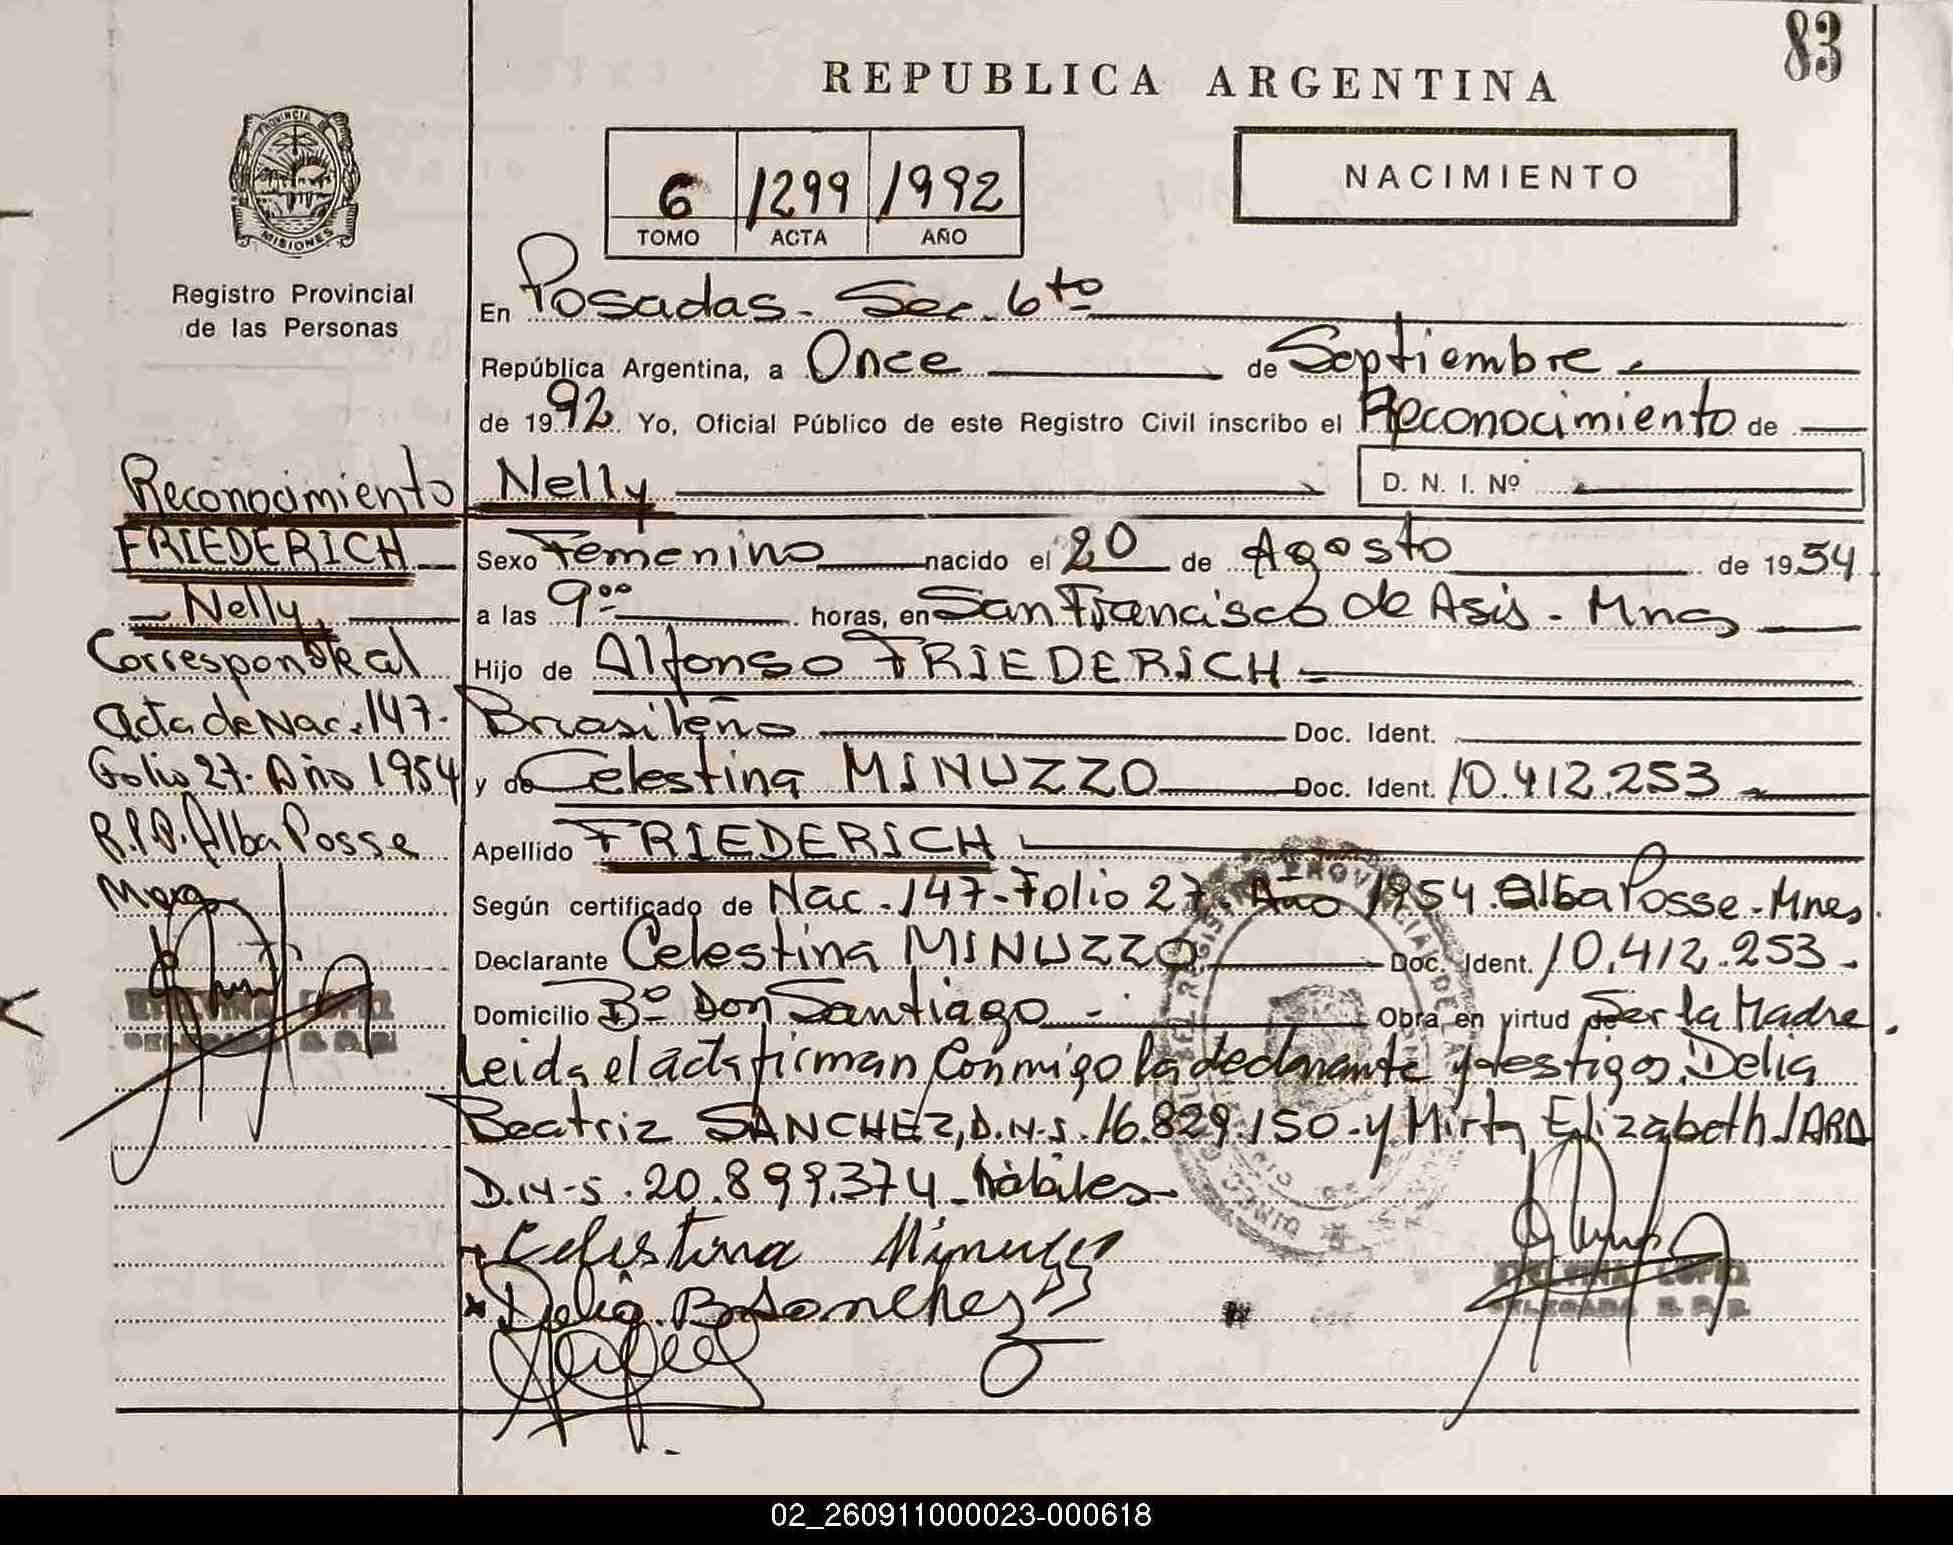 83
REPUBLICA ARGENTINA
PROVINCIA DE
MISIONES
Registro Provincial
de las Personas
6 1299 1992
TOMO ACTA AÑO
NACIMIENTO
En Posadas - Sec. 6to
República Argentina, a Once de Septiembre
de 1992 Yo, Oficial Público de este Registro Civil inscribo el Reconocimiento de
Nelly D. N. I. Nº
Sexo Femenino nacido el 20 de Agosto de 1954
a las 9 00 horas, en San Francisco de Asis - Mnes
Hijo de Alfonso FRIEDERICH
Brasileño Doc. Ident.
y de Celestina MINUZZO Doc. Ident. 10.412.253
Apellido FRIEDERICH
Según certificado de Nac. 147 - Folio 27 - Año 1954 Alba Posse - Mnes.
Declarante Celestina MINUZZO Doc. Ident. 10.412.253 -
Domicilio Bº Don Santiago - Obra en virtud de Ser la Madre.
Leida el acta firman conmigo la declarante y testigos, Delia
Beatriz SANCHEZ, D.N.I. 16.829.150 - y Mirta Elizabeth JARA
D.N.I. 20.899.374 - hábiles -
Celestina Minuzzo
Delia B Sanchez
Reconocimiento
FRIEDERICH
Nelly
Corresponde al
acta de Nac. 147 -
Folio 27 - Año 1954
R.P.P. Alba Posse
LOPEZ
DELEGADA R.P.P.
LOPEZ
DELEGADA R.P.P.
02_260911000023-000618